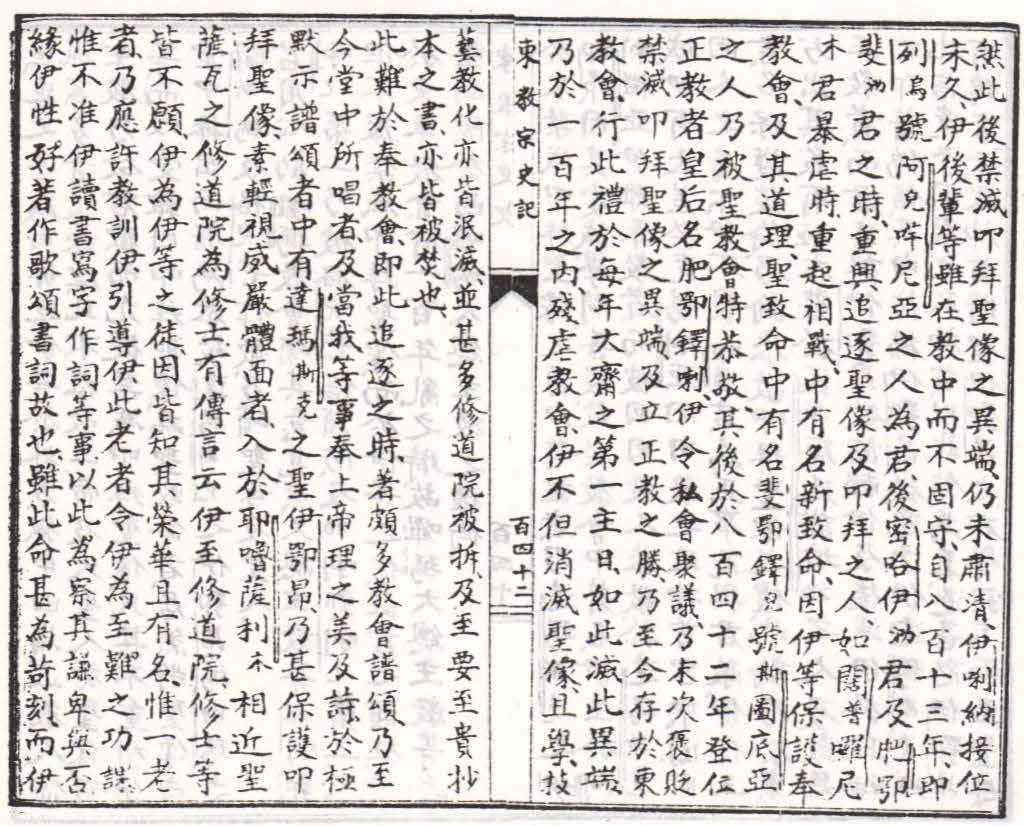 然此後禁滅叩拜聖像之異端、仍未肅清、伊唎納接位
未久、伊後輩等雖在教中而不固守、自八百十三年、即
列烏號阿兒哶尼亞之人為君、後密哈伊泐君及肥鄂
斐泐君之時、重興、追逐聖像及叩拜之人、如闊普囉尼
木君暴虐時、重起相戰、中有名新致命、因伊等保護奉
教會、及其道理、聖致命中有名斐鄂鐸兒號斯圖底亞
之人乃被聖教會特恭敬、其後於八百四十二年登位
正教者皇后名肥鄂鐸喇、伊令私會衆議、乃末次褒貶
禁滅叩拜聖像之異端、及立正教之勝、乃至今存於東
教會、行此禮於每年大齋之第一主日、如此滅此異端、
乃於一百年之內、殘虐教會、伊不但消滅聖像、且學、技
東教宗史記
百四十二
藝教化亦皆泯滅、並甚多修道院被拆、及至要至貴抄
本之書、亦皆被焚也、
此難於奉教會、即此追逐之時、著頗多教會譜頌、乃至
今堂中所唱者、及當我等事奉上帝理之美、及詩、於極
默示譜頌者中有達瑪斯克之聖伊鄂昂、乃甚保護叩
拜聖像、素輕視威嚴體面者、入於耶嚕薩利木相近聖
薩瓦之修道院、為修士、有傳言云伊至修道院、修士等
皆不願伊為伊等之徒、因皆知其榮華且有名、惟一老
者、乃應許教訓伊、引導伊、此老者令伊為至難之功課
惟不准伊讀書寫字作詞等事、以此為察其謙卑與否
緣伊性好著作歌頌書詞故也、雖此命甚為苛刻、而伊